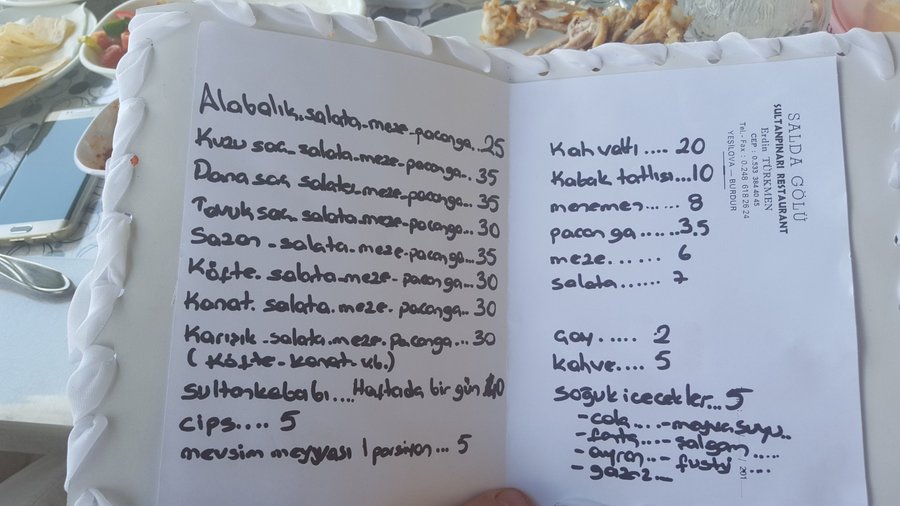 Alabalık. salata-meze-paçanga..25
Kuzu sac- salata.meze-paçanga.. 35
Dana sac salata.meze.paçanga... 35
Tavuk sac- salata-meze-paçanga... 30
Sazan - salata.meze-paçanga...35
Köfte. salata-meze-paçanga... 30
Kanat. salata.meze. paçanga.. 30
Karışık-salata.meze.paçanga...30
(Köfte-kanat v.b.)
sultankebabı....Haftada bir gün 40
cips.... 5
mevsim meyvası 1 porsiyon... 5
Kahvaltı .... 20
Kabak tatlısı...10
menemen...... 8
paçanga.....3.5
meze...... 6
salata...... 7
çay..... 2
kahve.... 5
soğuk içecekler... 5
-cola ....-meyva suyu..
-fanta ....-şalgam .....
-ayran ...- fusty ....
-gazoz ..
/201
SALDA GÖLÜ
SULTANPINARI RESTAURANT
Erdin TÜRKMEN
CEP : 0.533 384 40 45
Tel.-Fax : 0.248 618 26 24
YEŞİLOVA — BURDUR